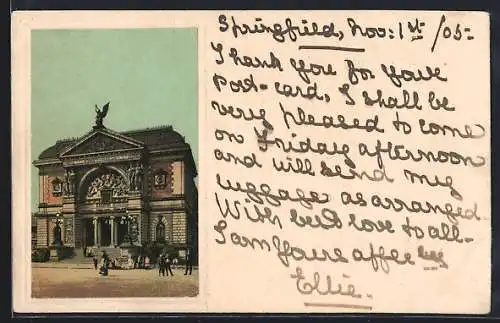 Springfield, Nov: 1st /05-
I thank you for your
post-card, I shall be
very pleased to come
on Friday afternoon
and will send my
luggage as arranged.
With best love to all-
I am yours affec ly
Ellie.